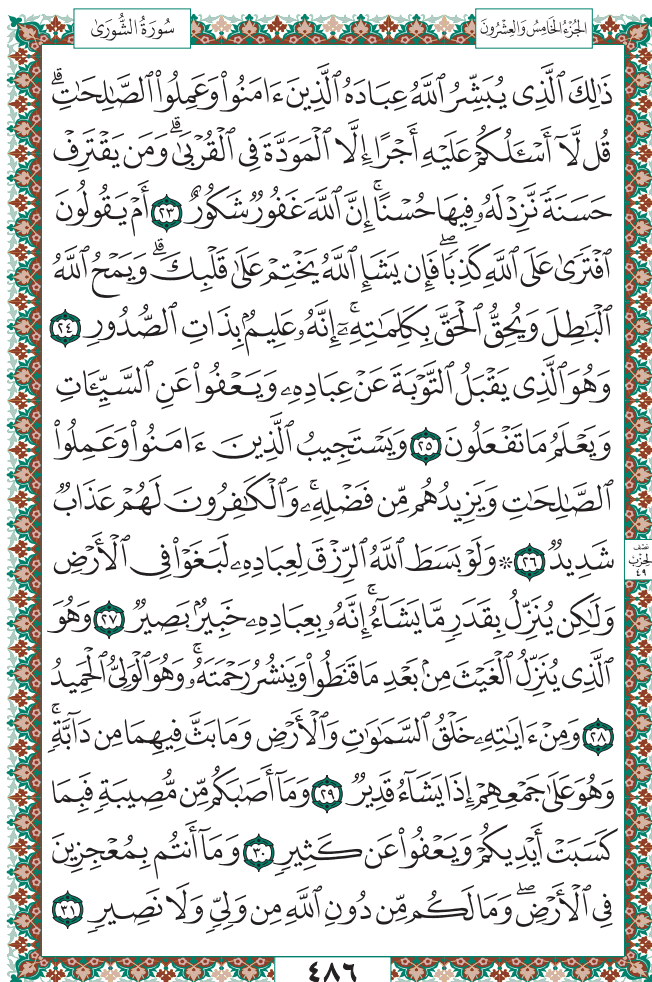 سُورَةُ الشُّورَىٰ
الجُزْءُ الخَامِسُ وَالعِشْرُونَ
ذَٰلِكَ ٱلَّذِي يُبَشِّرُ ٱللَّهُ عِبَادَهُ ٱلَّذِينَ ءَامَنُواْ وَعَمِلُواْ ٱلصَّٰلِحَٰتِۗ
قُل لَّآ أَسۡـَٔلُكُمۡ عَلَيۡهِ أَجۡرًا إِلَّا ٱلۡمَوَدَّةَ فِي ٱلۡقُرۡبَىٰۗ وَمَن يَقۡتَرِفۡ
حَسَنَةٗ نَّزِدۡ لَهُۥ فِيهَا حُسۡنًاۚ إِنَّ ٱللَّهَ غَفُورٞ شَكُورٌ ٢٣ أَمۡ يَقُولُونَ
ٱفۡتَرَىٰ عَلَى ٱللَّهِ كَذِبٗاۖ فَإِن يَشَإِ ٱللَّهُ يَخۡتِمۡ عَلَىٰ قَلۡبِكَۗ وَيَمۡحُ ٱللَّهُ
ٱلۡبَٰطِلَ وَيُحِقُّ ٱلۡحَقَّ بِكَلِمَٰتِهِۦٓۚ إِنَّهُۥ عَلِيمُۢ بِذَاتِ ٱلصُّدُورِ ٢٤
وَهُوَ ٱلَّذِي يَقۡبَلُ ٱلتَّوۡبَةَ عَنۡ عِبَادِهِۦ وَيَعۡفُواْ عَنِ ٱلسَّيِّـَٔاتِ
وَيَعۡلَمُ مَا تَفۡعَلُونَ ٢٥ وَيَسۡتَجِيبُ ٱلَّذِينَ ءَامَنُواْ وَعَمِلُواْ
ٱلصَّٰلِحَٰتِ وَيَزِيدُهُم مِّن فَضۡلِهِۦۚ وَٱلۡكَٰفِرُونَ لَهُمۡ عَذَابٞ
شَدِيدٞ ٢٦ ۞ وَلَوۡ بَسَطَ ٱللَّهُ ٱلرِّزۡقَ لِعِبَادِهِۦ لَبَغَوۡاْ فِي ٱلۡأَرۡضِ
نصف
الحزب
٤٩
وَلَٰكِن يُنَزِّلُ بِقَدَرٖ مَّا يَشَآءُۚ إِنَّهُۥ بِعِبَادِهِۦ خَبِيرُۢ بَصِيرٞ ٢٧ وَهُوَ
ٱلَّذِي يُنَزِّلُ ٱلۡغَيۡثَ مِنۢ بَعۡدِ مَا قَنَطُواْ وَيَنشُرُ رَحۡمَتَهُۥۚ وَهُوَ ٱلۡوَلِيُّ ٱلۡحَمِيدُ
٢٨ وَمِنۡ ءَايَٰتِهِۦ خَلۡقُ ٱلسَّمَٰوَٰتِ وَٱلۡأَرۡضِ وَمَا بَثَّ فِيهِمَا مِن دَآبَّةٖۚ
وَهُوَ عَلَىٰ جَمۡعِهِمۡ إِذَا يَشَآءُ قَدِيرٞ ٢٩ وَمَآ أَصَٰبَكُم مِّن مُّصِيبَةٖ فَبِمَا
كَسَبَتۡ أَيۡدِيكُمۡ وَيَعۡفُواْ عَن كَثِيرٖ ٣٠ وَمَآ أَنتُم بِمُعۡجِزِينَ
فِي ٱلۡأَرۡضِۖ وَمَا لَكُم مِّن دُونِ ٱللَّهِ مِن وَلِيّٖ وَلَا نَصِيرٖ ٣١
٤٨٦